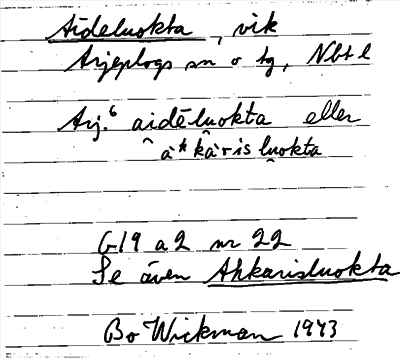 Aideluokta, vik
Arjeplogs sn o tg, Nbt l
Arj.⁶ ai̯dēlu̯okta eller
àʰkàris lu̯okta
G19 a2 nr 22
Se även Ahkarisluokta
Bo Wickman 1943